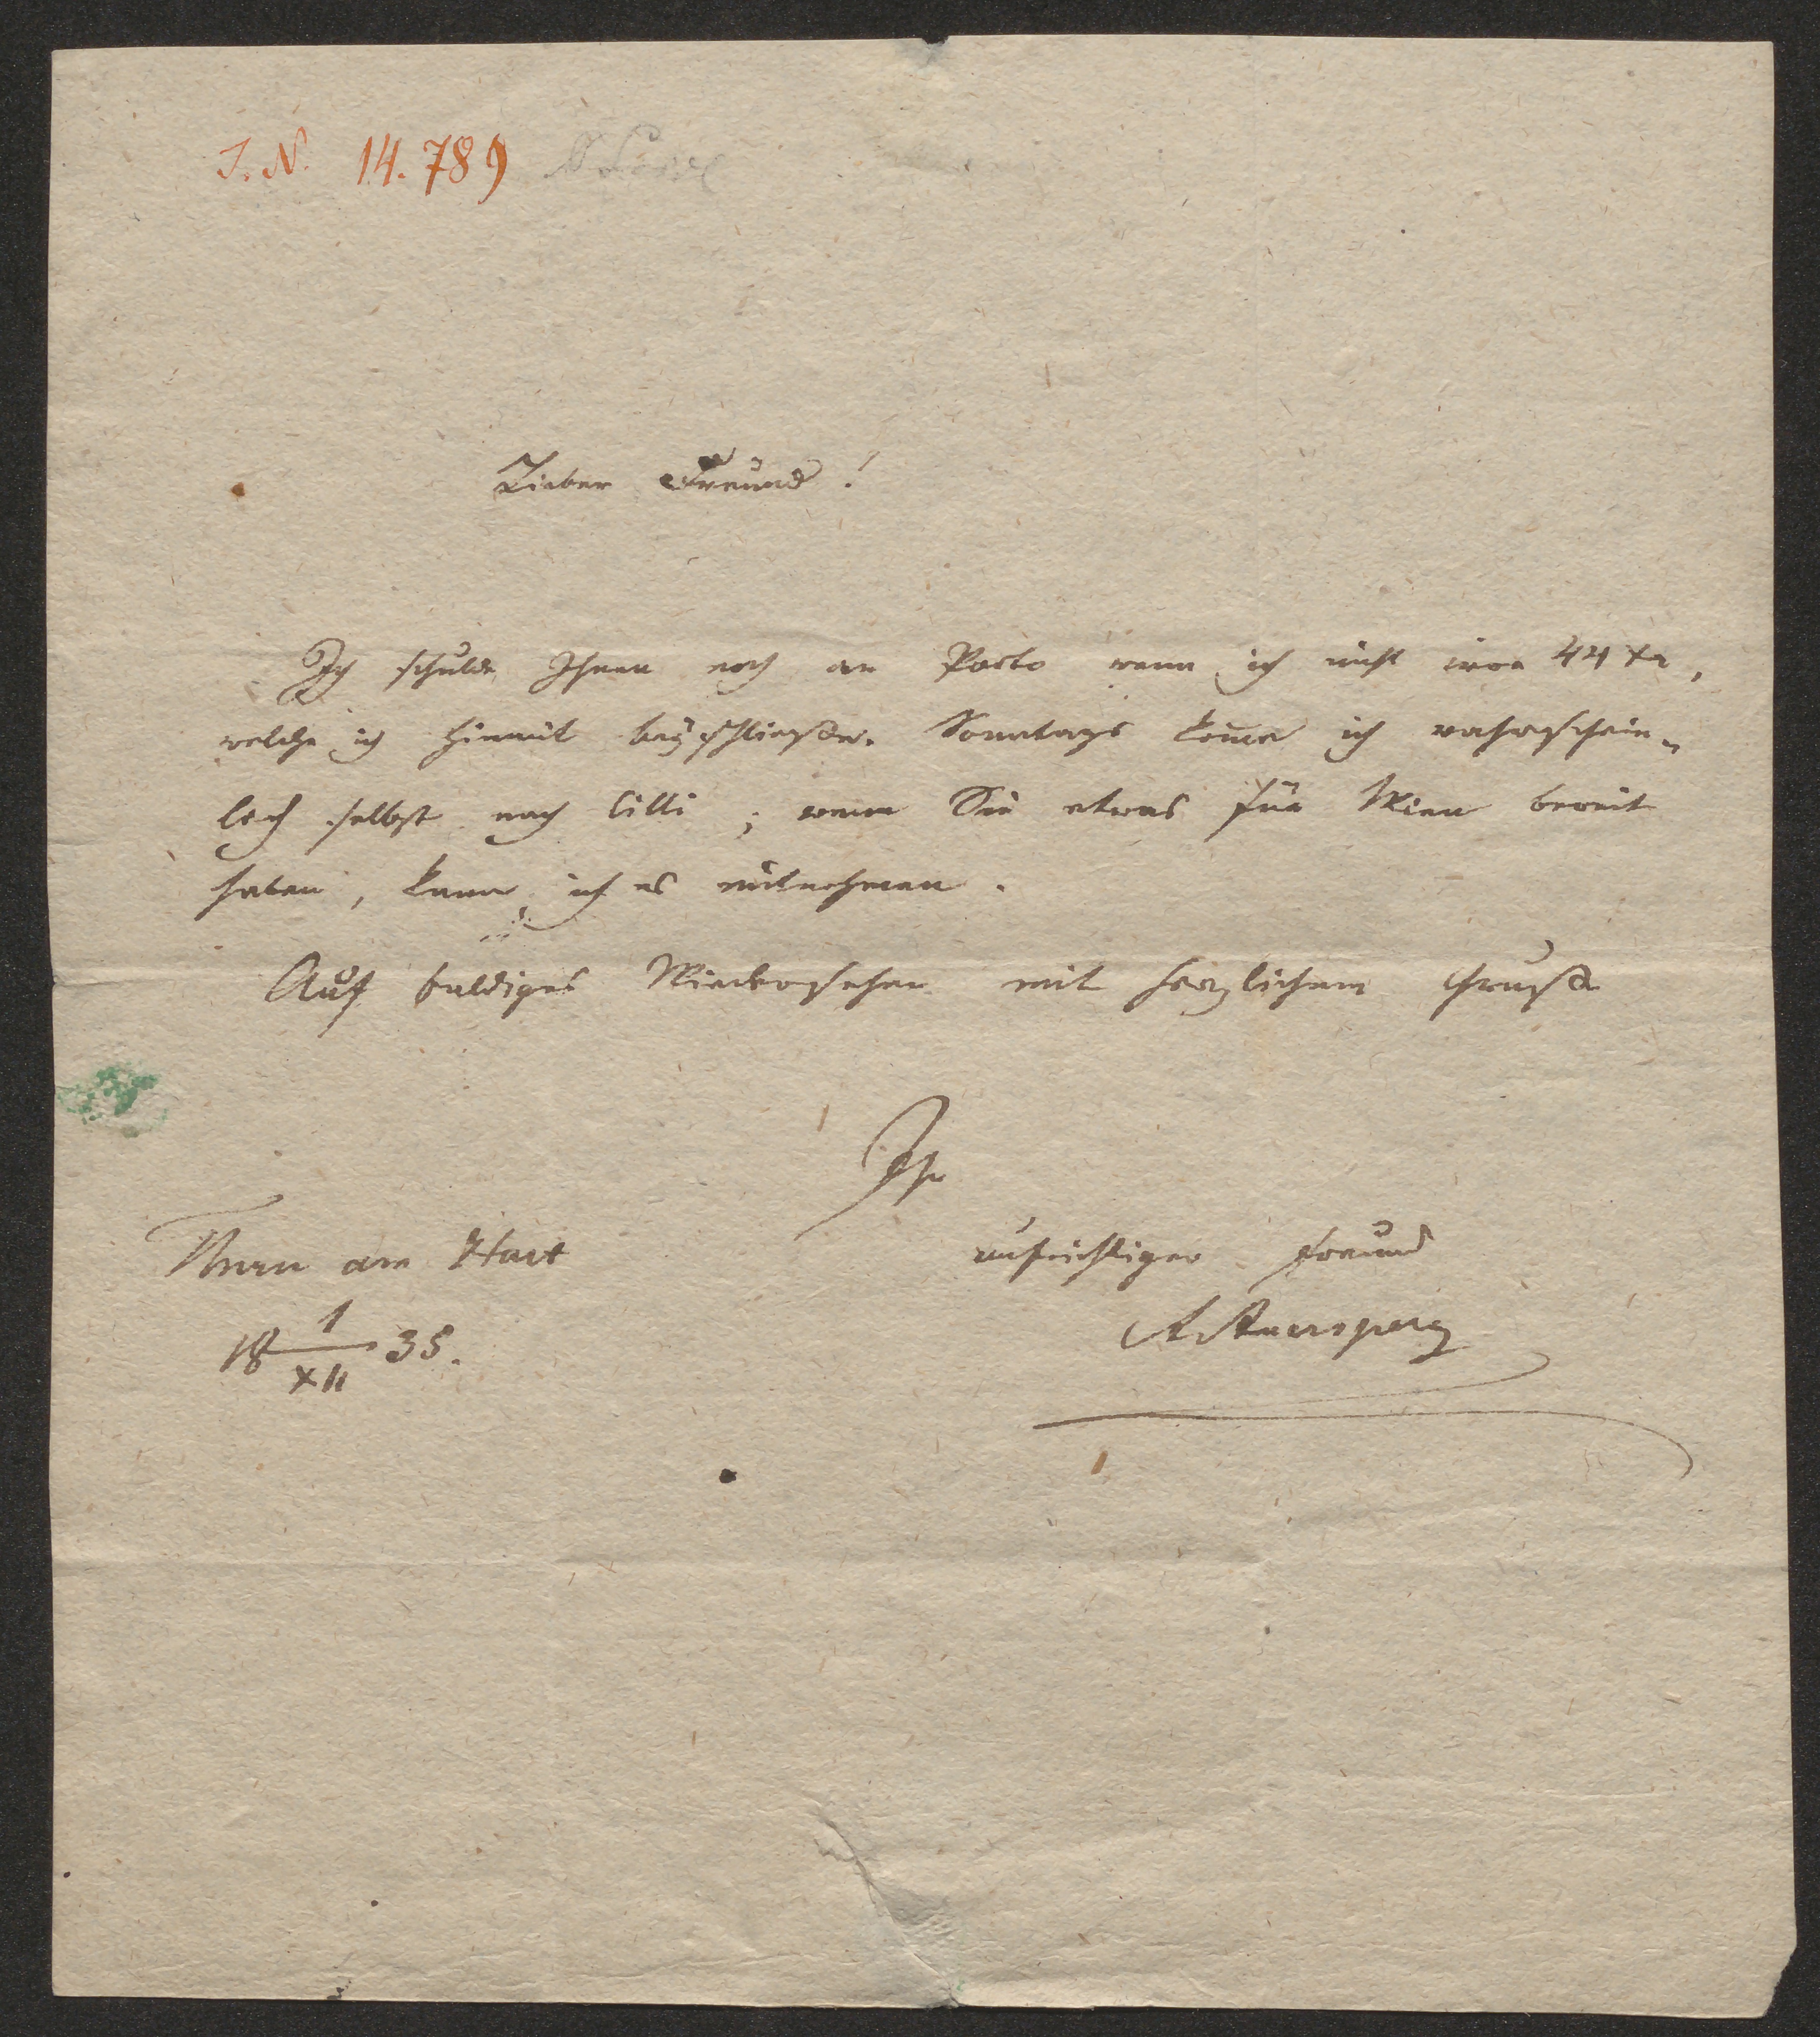 I. N. 14.789
Lieber Freund!
Ich schulde Ihnen noch an Porto wenn ich nicht irre 44 xr,
welche ich hiemit beÿschließe. Sonntags kom̅e ich wahrschein„
lich selbst nach Cilli; wenn Sie etwas für Wien bereit
haben, kann ich es mitnehmen.
Auf baldiges Wiedersehen mit herzlichem Gruße
Ihr
Thurn am Hart aufrichtiger Freund
18 1/XII 35. AAuersperg